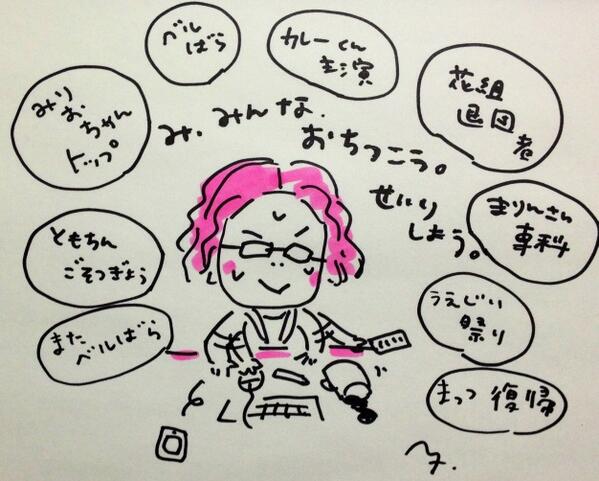 ベル
ばら
カレーくん
主演
花組
退団
者
みり
おちゃん
トップ
み、みんな、
おちつこう。
せいり
しよう。
まりんさん
専科
ともちん
ごそつぎょう
うえじい
祭り
また
ベルばら
まっつ 復帰